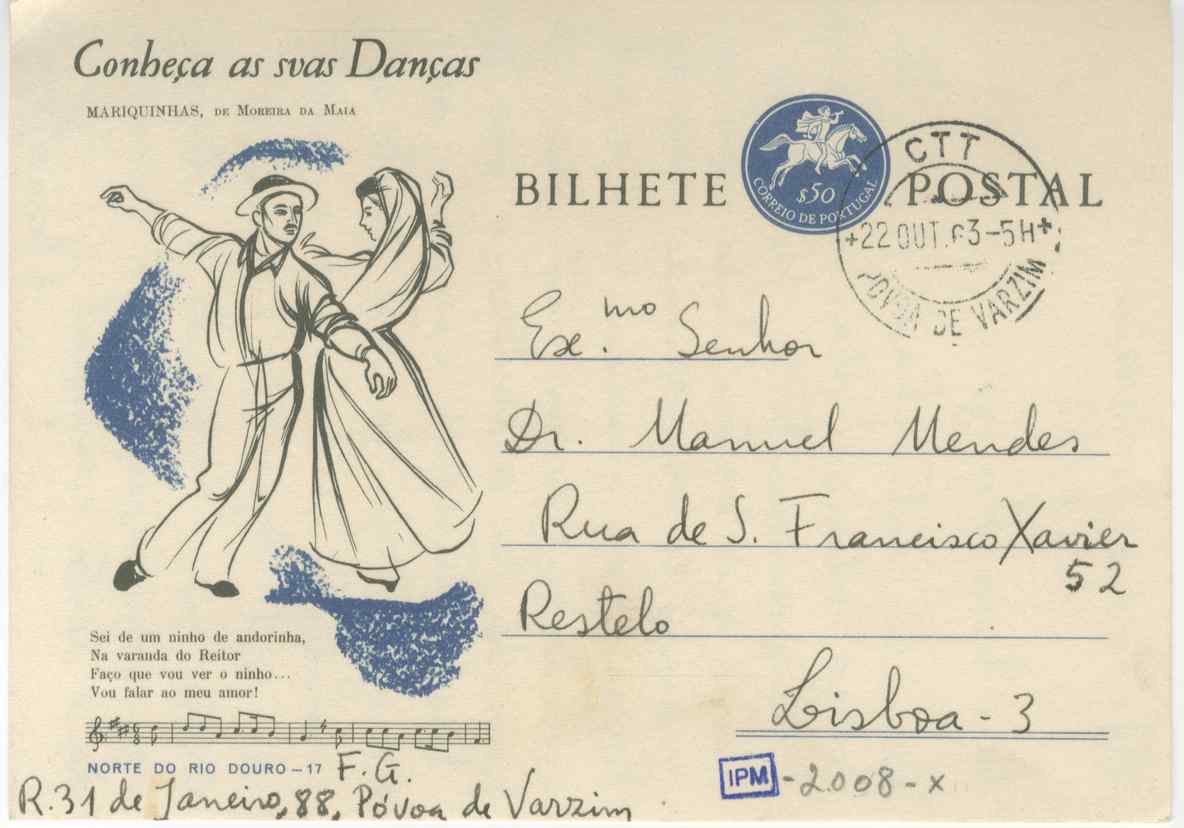 Conheça as svas Danças
MARIQUINHAS, DE MOREIRA DA MAIA
BILHETE POSTAL
$50
CORREIO DE PORTUGAL
CTT
+22 OUT.63-5H+
PÓVOA DE VARZIM
Exe.mo Senhor
Dr. Manuel Mendes
Rua de S. Francisco Xavier
52
Restelo
Lisboa - 3
Sei de um ninho de andorinha,
Na varanda do Reitor
Faço que vou ver o ninho...
Vou falar ao meu amor!
NORTE DO RIO DOURO - 17
F. G.
R. 31 de Janeiro, 88, Póvoa de Varzim
IPM -2008-X